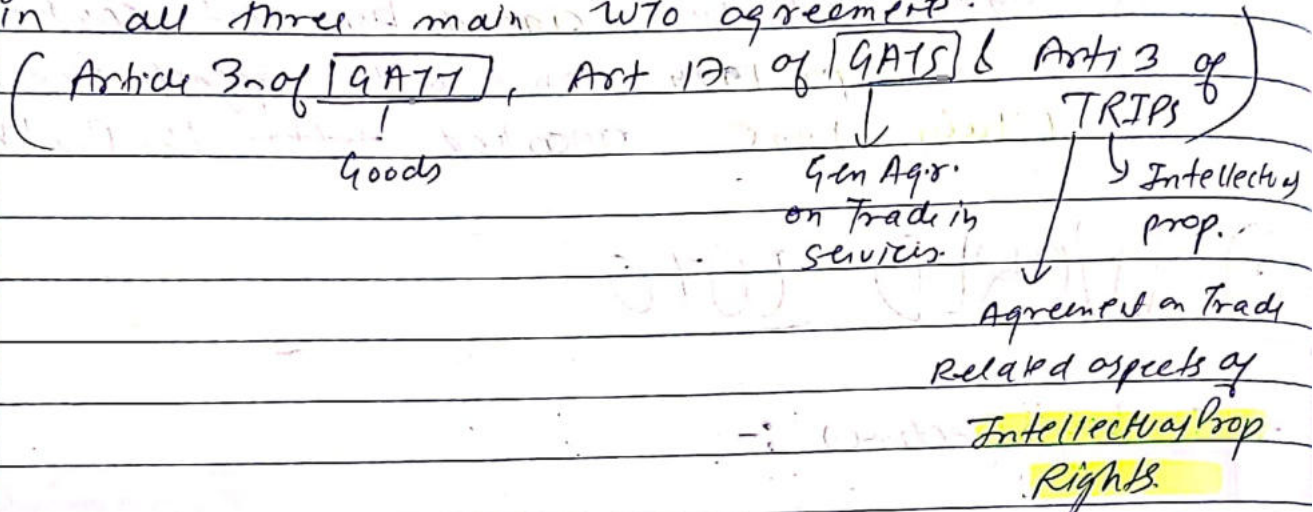 in all three main WTO agreement.
(Article 3 of GATT, Art 17 of GATS & Arti 3 of
TRIPs)
Goods
Gen Agr.
on Trade in
services.
Intellectual
prop.
Agreement on Trade
Related aspects of
Intellectual Prop
Rights.